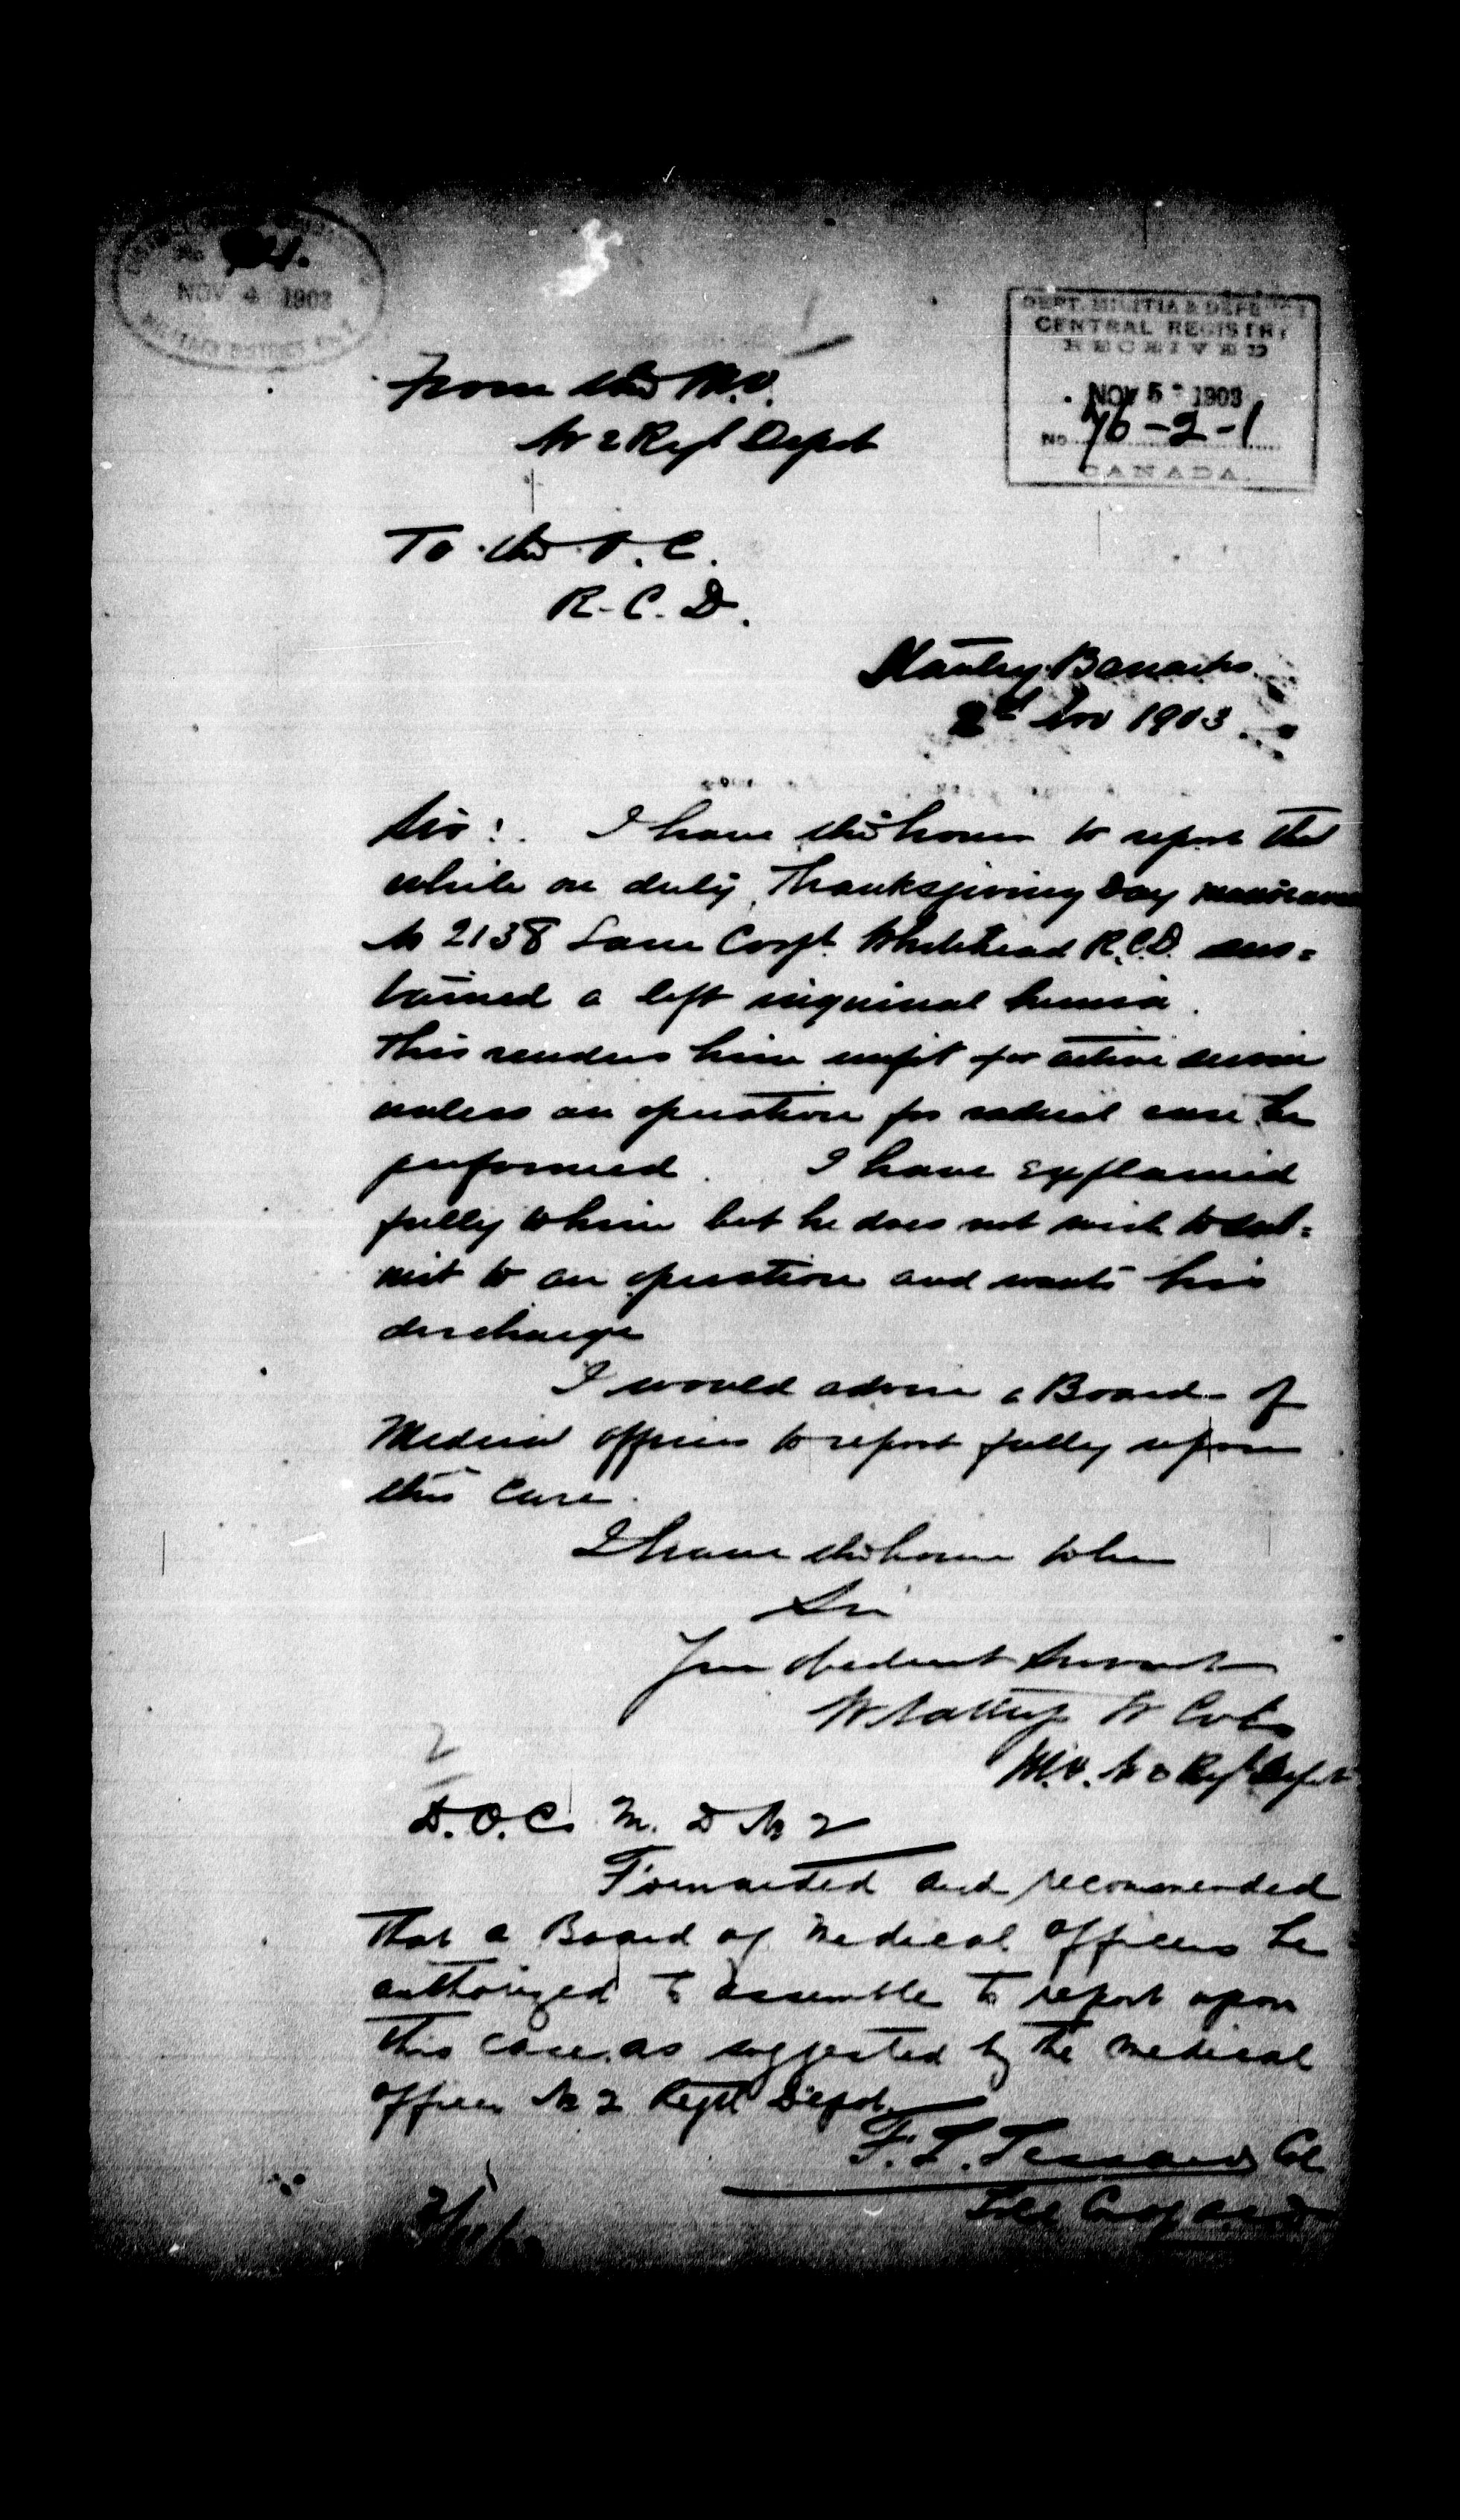 NOV 4 1903
MILITARY DISTRICT
DEPT. MILITIA & DEFENCE
CENTRAL REGISTRY
RECEIVED
NOV 5 1903
No 76-2-1
CANADA.
From the M.O.
No 2 Regl Depot
To the O.C.
R.C.D.
Stanley Barracks
2nd Nov 1903.
Sir: I have the honor to report that
while on duty, Thanksgiving Day manoeuvres
No 2138 Lance Corpl. Whitehead R.C.D. sus=
tained a left inguinal hernia.
This renders him unfit for active service
unless an operation for radical cure be
performed. I have explained
fully to him but he does not wish to sub=
mit to an operation and wants his
discharge
I would advise a Board of
Medical officers to report fully upon
this case.
I have the honor to be
Sir
Your obedient Servant
M.O. No 2 Regl Depot
2
D.O.C. M.D No 2
Forwarded and recommended
that a Board of Medical Officers be
authorized to assemble to report upon
this case, as suggested by the Medical
Officer No 2 Regtl Depot.
F. L. Lessard Col